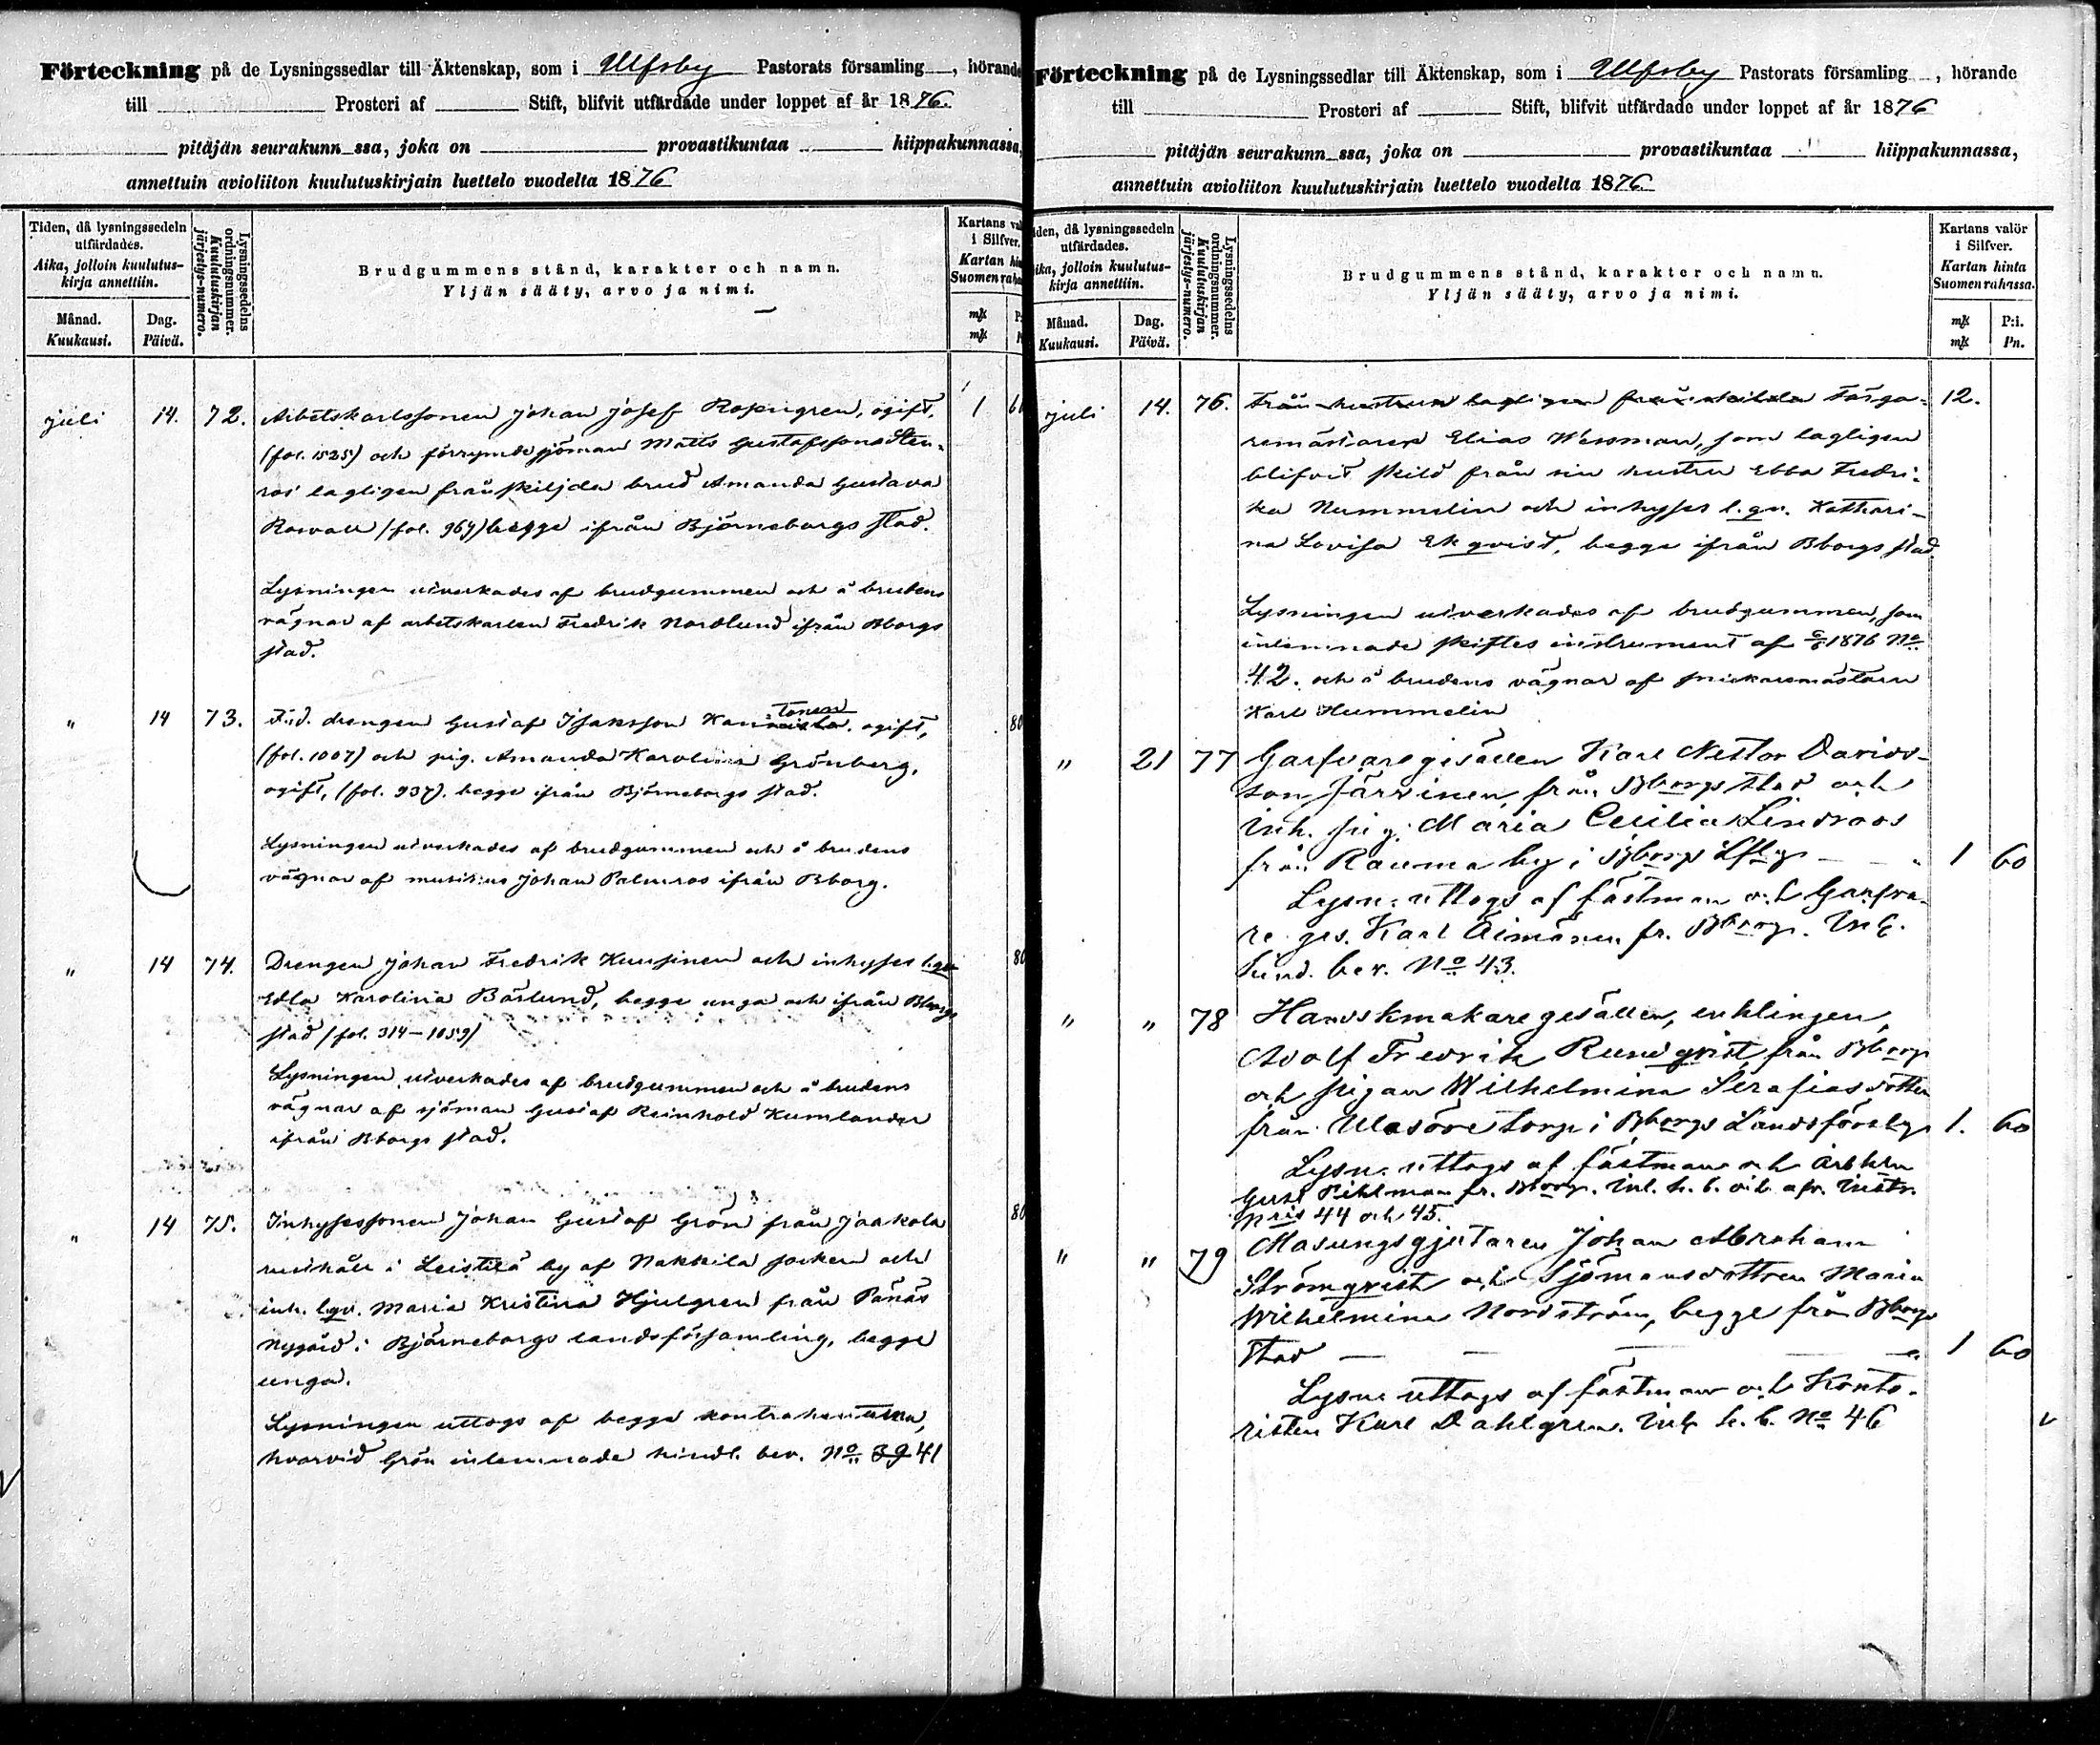 Förteckning på de Lysningssedlar till Äktenskap, som i Ulfsby Pastorats församling, hörande
till Prosteri af Stift, blifvit utfärdade under loppet af år 1876.
pitäjän seurakunn ssa, joka on provastikuntaa hiippakunnassa,
annettuin avioliiton kuulutuskirjain luettelo vuodelta 1876
Tiden, då lysningssedeln
utfärdades.
Aika, jolloin kuulutus-
kirja annettiin.
Månad.
Kuukausi.
Dag.
Päivä.
Lysningssedelns
ordningsnummer.
Kuulutuskirjan
järjestys-numero.
Brudgummens stånd, karakter och namn.
Yljän sääty, arvo ja nimi.
Kartans val
i Silfver.
Kartan hin
Suomen raha
mk
mk
juli 14. 72. Arbetskarlssonen Johan Josef Rosengren, ogift, 1 60
(fol. 1525) och förrymde sjöman Matts Gustafsson Sten-
ros' lagligen frånskiljda brud Amanda Gustava
Rosvall (fol. 969) begge ifrån Björneborgs stad.
Lysningen utverkades af brudgummen och å brudens
vägnar af arbetskarlen Fredrik Nordlund ifrån Bborgs
stad.
" 14 73. F.d. drengen Gustaf Isaksson Kan tonen ogift, 80
(fol. 1007) och pig. Amanda Karolina Grönberg,
ogift, (fol. 937). begge ifrån Björneborgs stad.
Lysningen utverkades af brudgummen och å brudens
vägnar af musikus Johan Palmros ifrån Bborg.
" 14 74. Drengen Johan Fredrik Kuusinen och inhyses lgn 80
Edla Karolina Bärlund, begge unga och ifrån Bborgs
stad (fol. 314-1059)
Lysningen utverkades af brudgummen och å brudens
vägnar af sjöman Gustaf Reinhold Kumlander
ifrån Bborgs stad.
" 14 75. Inhysessonen Johan Gustaf Grön från Jaakola 80
rusthåll i Leistilä by af Nakkila socken och
inh. lgn. Maria Kristina Hjulgren från Pänäs
nygård i Björneborgs landsförsamling, begge
unga.
Lysningen uttogs af begge kontrahenterna,
hvarvid Grön inlemnade hindl. bev. No 39 41
Förteckning på de Lysningssedlar till Äktenskap, som i Ulfsby Pastorats församling, hörande
till Prosteri af Stift, blifvit utfärdade under loppet af år 1876
pitäjän seurakunn ssa, joka on provastikuntaa hiippakunnassa,
annettuin avioliiton kuulutuskirjain luettelo vuodelta 1876
iden, då lysningssedeln
utfärdades.
ika, jolloin kuulutus-
kirja annettiin.
Månad.
Kuukausi.
Dag.
Päivä.
Lysningssedelns
ordningsnummer.
Kuulutuskirjan
järjestys-numero.
Brudgummens stånd, karakter och namn.
Yljän sääty, arvo ja nimi.
Kartans valör
i Silfver.
Kartan hinta
Suomen rahassa.
mk P:i.
mk Pn.
juli 14. 76. Från hustrun lagligen frånskilda Färga- 12.
remästaren Elias Wessman, som lagligen
blifvit skild från sin hustru Ebba Fredri-
ka Nummelin och inhyses l.gn. Kathari-
na Lovisa Ekqvist, begge ifrån Bborgs stad
Lysningen utverkades af brudgummen, som
inlemnade skiftes instrument af 1876 No
42. och å brudens vägnar af snickaremästaren
Karl Hummelin
" 21 77 Garfvaregesällen Karl Nestor Davids-
son Järvinen från Bborgs stad och
inh. pig. Maria Cecilia Lindroos
från Rauma by i Bborgs Lfslg 1 60
Lysn. uttogs af fästman och Garfva-
re ges. Karl Äimänen fr. Bborg. Inl.
hind. bev. No 43.
" " 78 Handskmakaregesällen, enklingen,
Adolf Fredrik Rundqvist från Bborg
och pigan Wilhelmina Serafiasdotter
från Ulasöre torp i Bborgs Landsförslg 1. 60
Lysn. uttogs af fästman och arbkln
Gust Pihlman fr. Bborg. Inl. h. b. och afv. instr.
Nris 44 och 45.
" " 79 Masungsgjutaren Johan Abraham
Strömqvist och Sjömansdottren Maria
Wilhelmina Nordström, begge från Bborgs
stad 1 60
Lysn. uttogs af fästman och Konto-
risten Karl Dahlgren. Inl. h. b. No 46